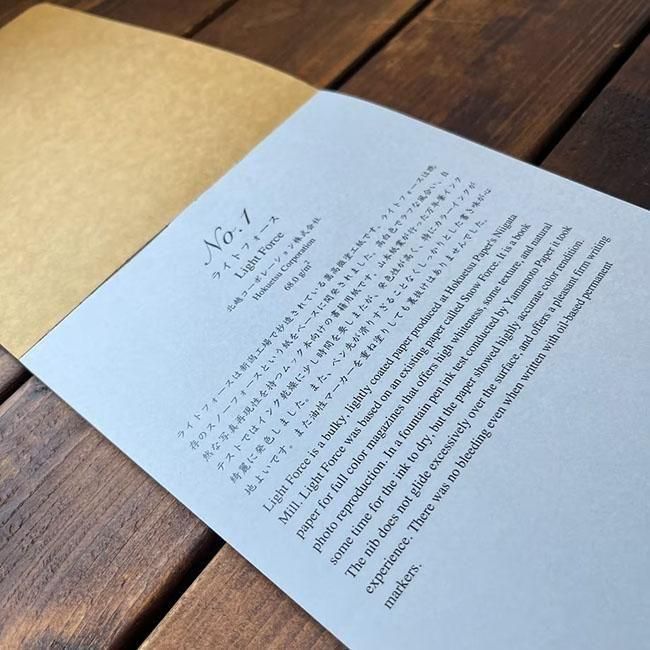 No. 1
ライトフォース
Light Force
北越コーポレーション株式会社
Hokuetsu Corporation
68.0 g/m²
ライトフォースは新潟工場で抄造されている嵩高微塗工紙です。ライトフォースは既
存のスノーフォースという紙をベースに開発されました。高白色でラフな風合い、自
然な写真再現性を持つムック誌向けの書籍用紙です。山本紙業が行った万年筆インク
テストではインク乾燥に少し時間を要しましたが、発色性が高く、特にカラーインクが
綺麗に発色しました。また、ペン先が滑りすぎることなくしっかりとした書き味が心
地よいです。また油性マーカーを重ね塗りしても裏抜けはありませんでした。
Light Force is a bulky, lightly coated paper produced at Hokuetsu Paper's Niigata
Mill. Light Force was based on an existing paper called Snow Force. It is a book
paper for full color magazines that offers high whiteness, some texture, and natural
photo reproduction. In a fountain pen ink test conducted by Yamamoto Paper it took
some time for the ink to dry, but the paper showed highly accurate color rendition.
The nib does not glide excessively over the surface, and offers a pleasant firm writing
experience. There was no bleeding even when written with oil-based permanent
markers.